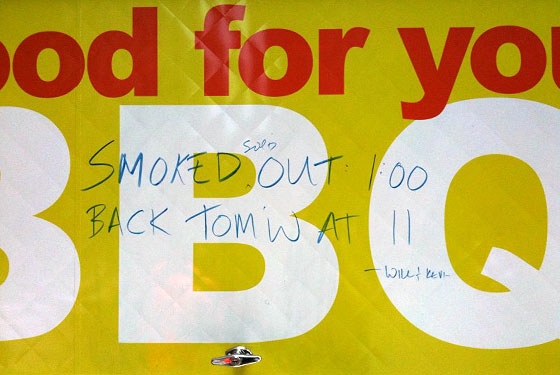 ood for you
BBQ
SMOKED SOLD OUT 1:00
BACK TOM'W AT 11
- WILL & KEVIN